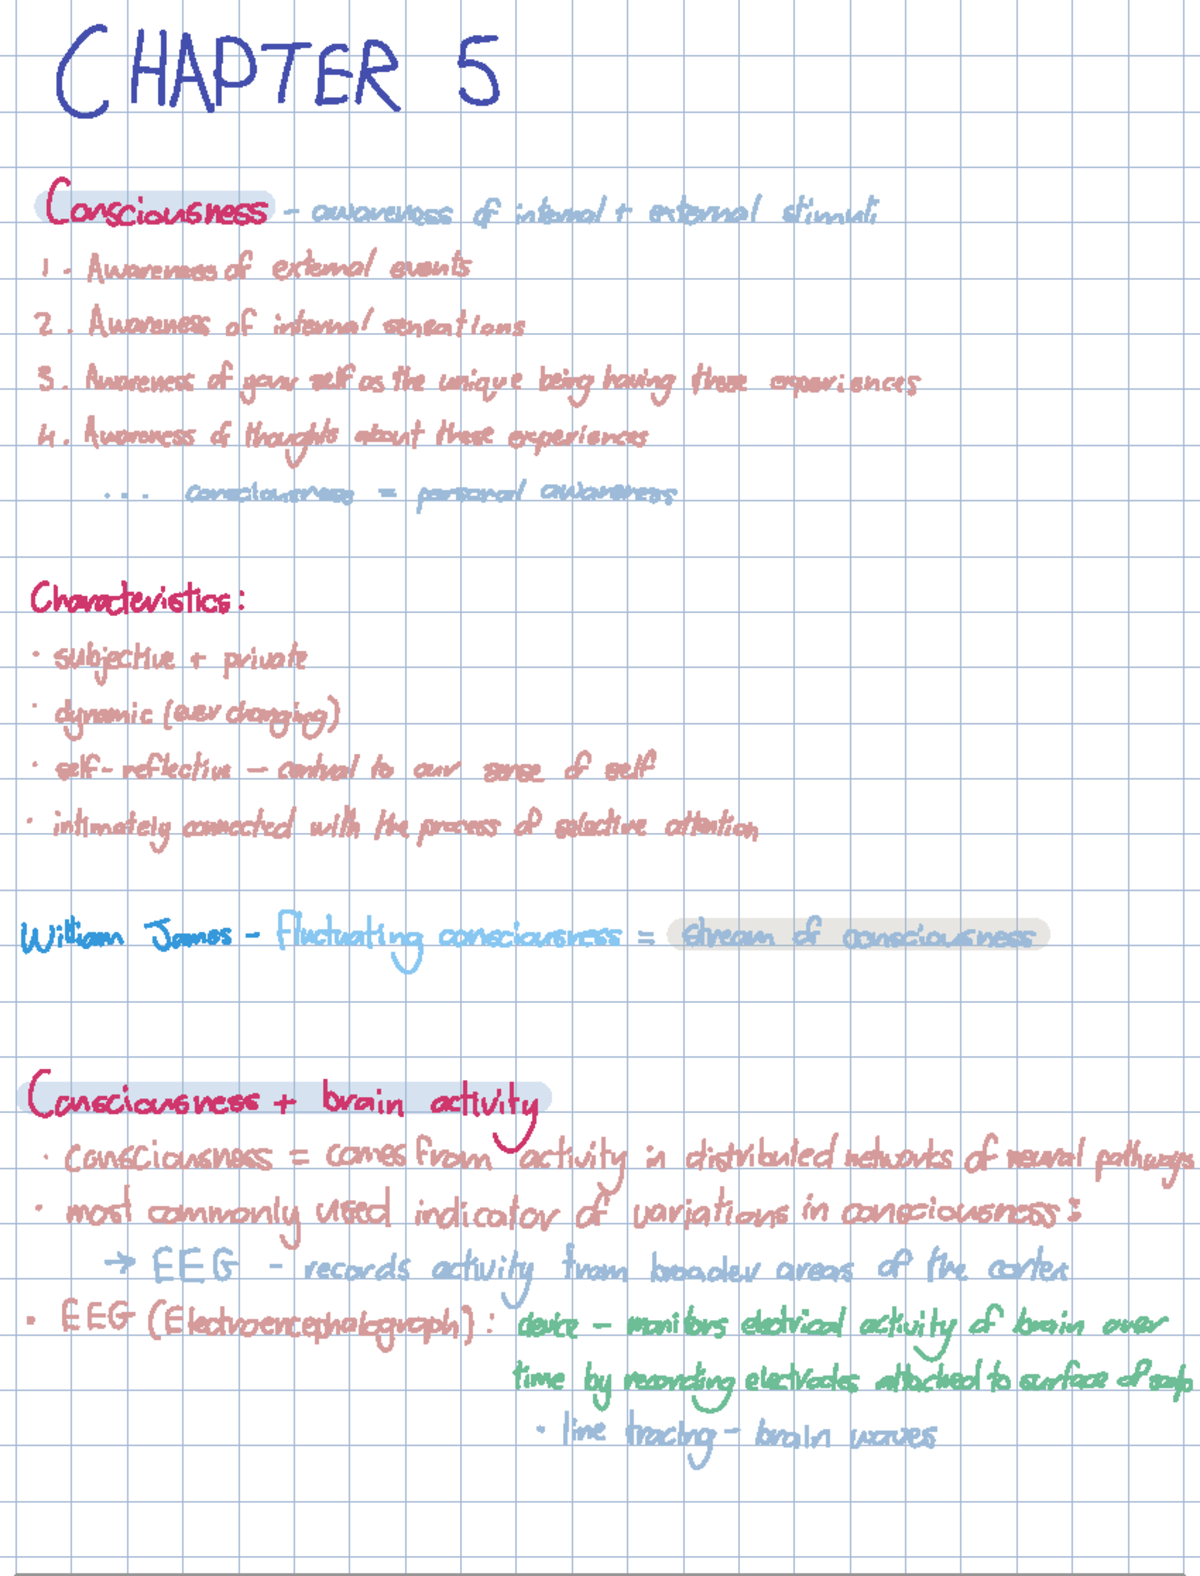 CHAPTER 5
Consciousness - awareness of internal + external stimuli
1. Awareness of external events
2. Awareness of internal sensations
3. Awareness of your self as the unique being having these experiences
4. Awareness of thoughts about these experiences
... consciousness = personal awareness
Characteristics:
· subjective + private
· dynamic (ever changing)
· self-reflective - central to our sense of self
· intimately connected with the process of selective attention
William James - Fluctuating consciousness = stream of consciousness
Consciousness + brain activity
· consciousness = comes from activity in distributed networks of neural pathways
· most commonly used indicator of variations in consciousness:
→ EEG - records activity from broader areas of the cortex
· EEG (Electroencephalograph): device - monitors electrical activity of brain over
time by recording electrodes attached to surface of scalp
· line tracing - brain waves